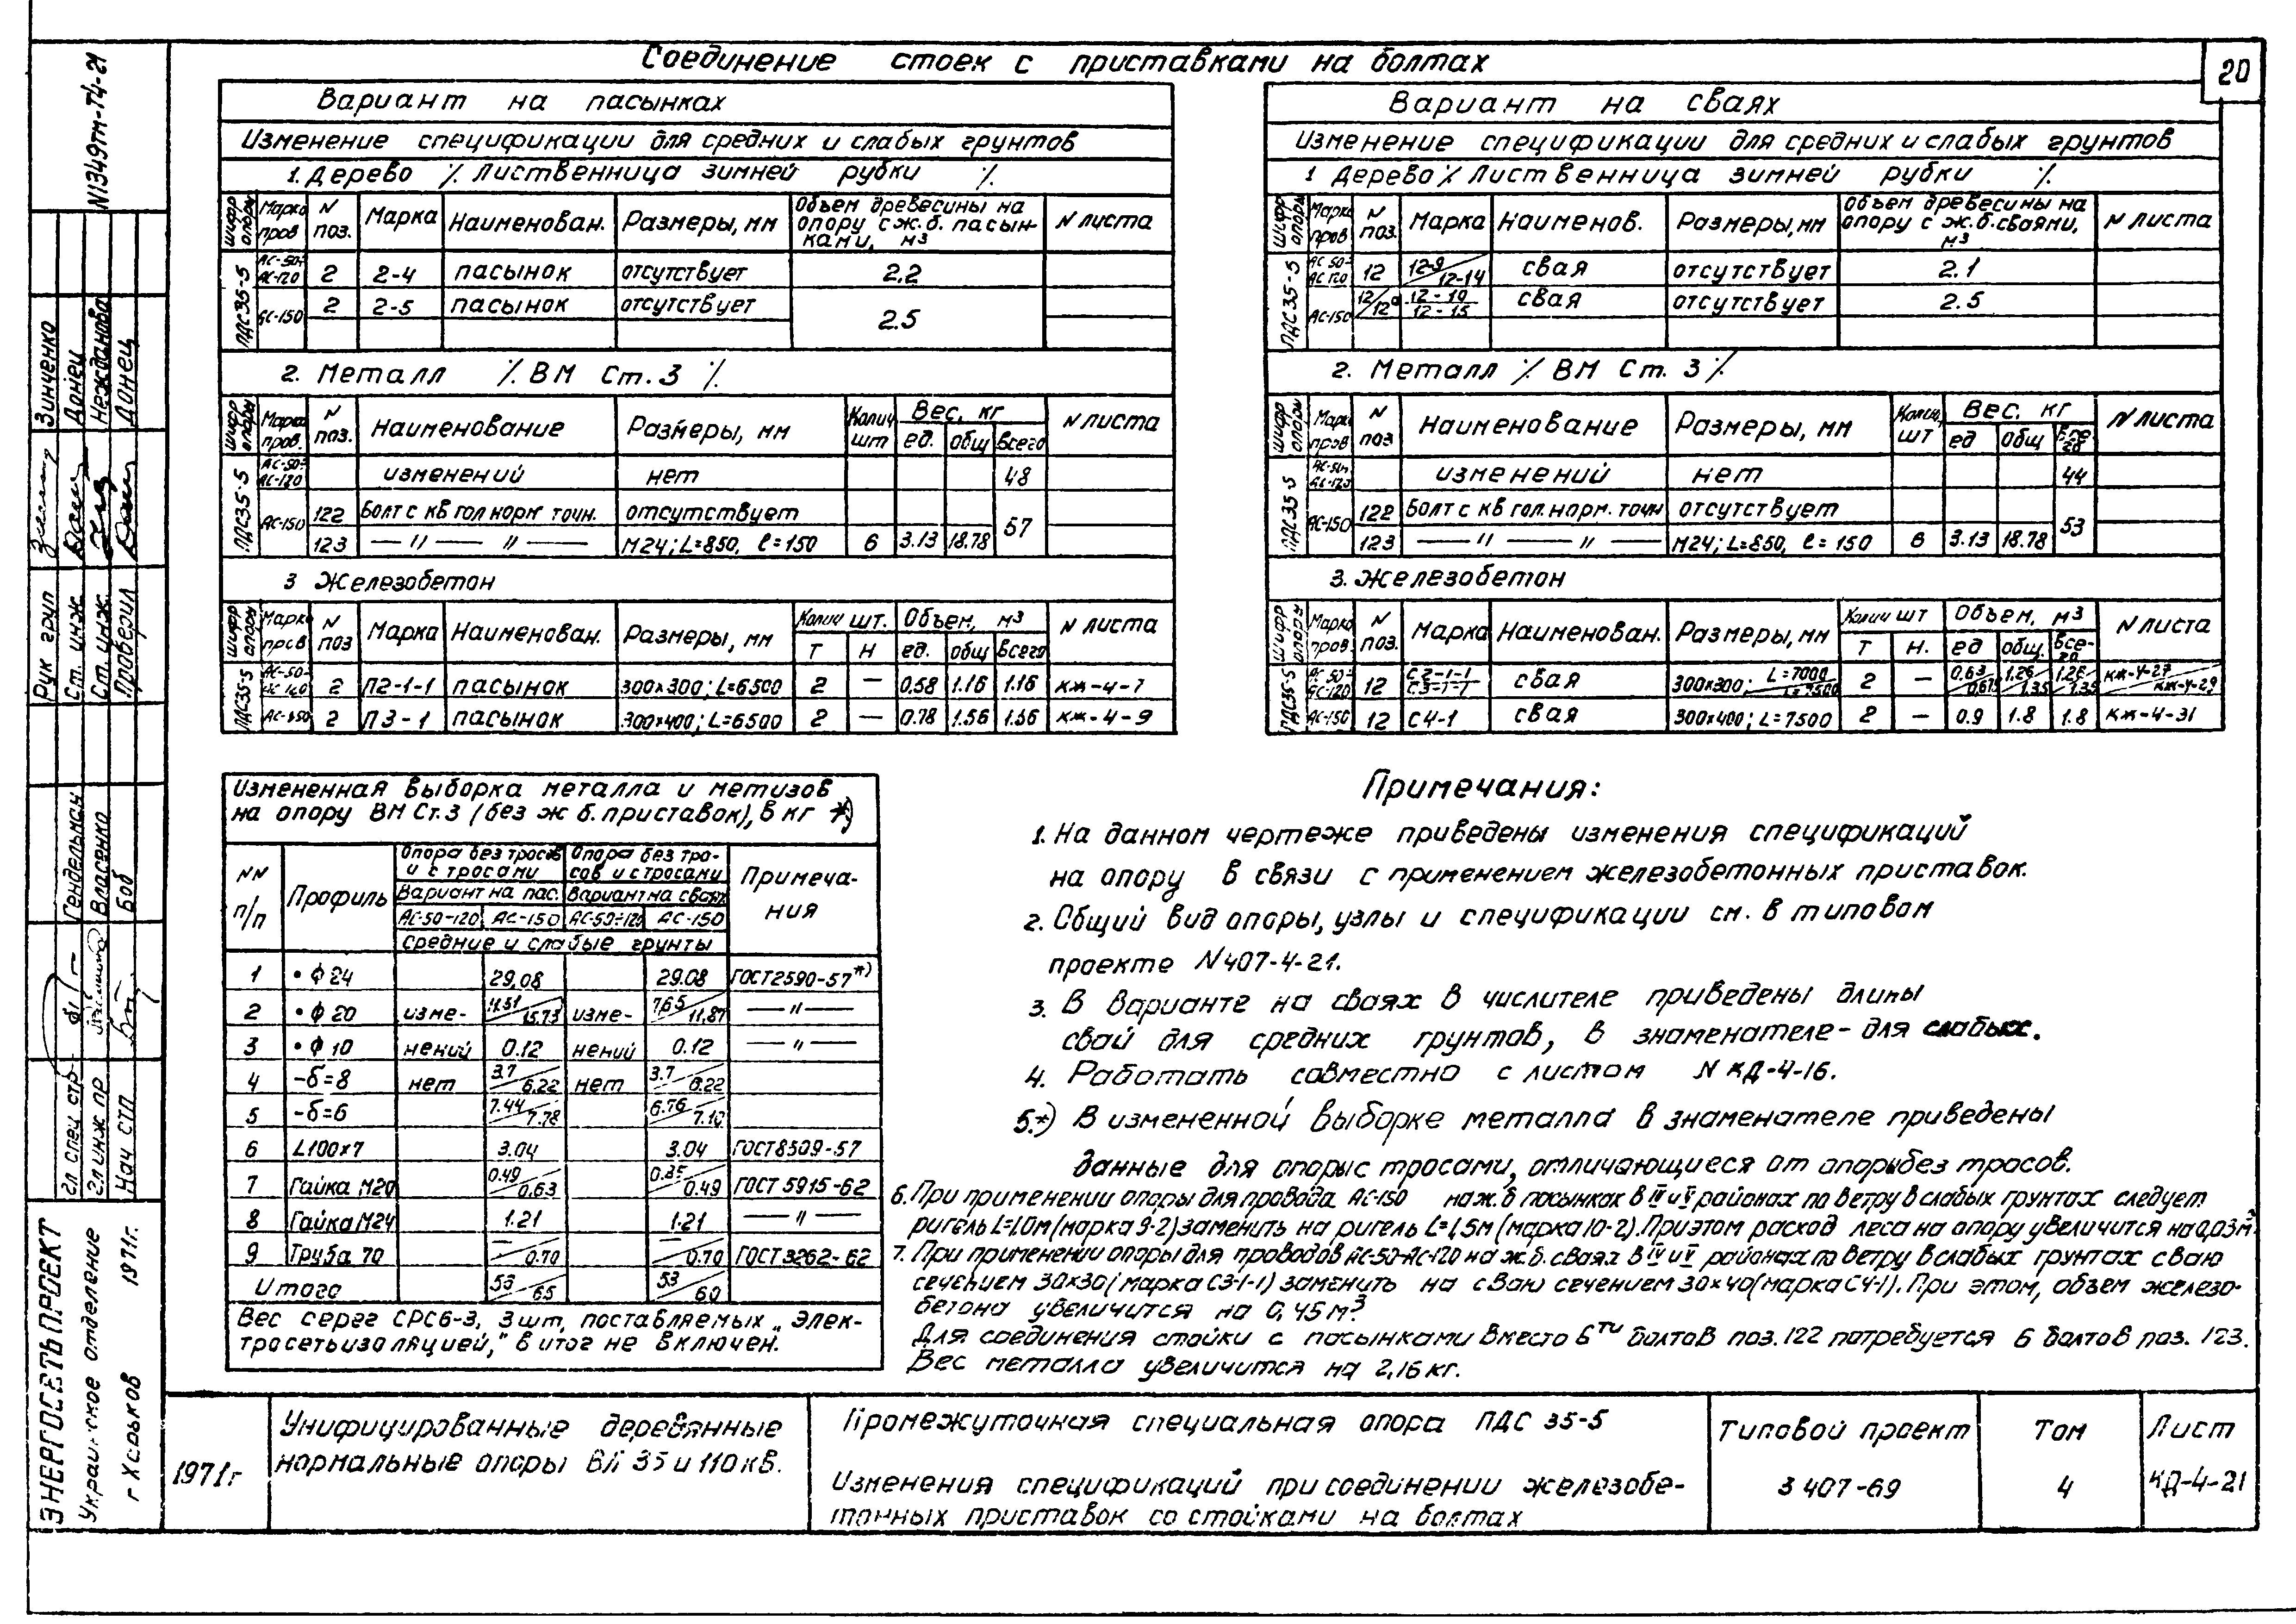 Соединение стоек с приставками на болтах
20
Вариант на пасынках
Изменение спецификации для средних и слабых грунтов
1. Дерево ٪ Лиственница зимней рубки ٪
Шифр опоры Марка пров N поз. Марка Наименован. Размеры, мм Объем древесины на опору с ж.б. пасынками, м3 N листа
ПДС35-5 АС-50÷АС-120 2 2-4 пасынок отсутствует 2.2
АС-150 2 2-5 пасынок отсутствует 2.5
2. Металл ٪ ВМ Ст.3 ٪
Шифр опоры Марка пров. N поз. Наименование Размеры, мм Колич шт Вес, кг ед. общ Всего N листа
ПДС35-5 АС-50÷АС-120 изменений нет 48
АС-150 122 Болт с кв гол норм точн. отсутствует 57
123 —〃— 〃— М24; L=850, ℓ=150 6 3.13 18.78
3 Железобетон
Шифр опоры Марка пров N поз Марка Наименован. Размеры, мм Колич шт. Т Н Объем, м3 ед. общ Всего N листа
ПДС35-5 АС-50÷АС-120 2 П2-1-1 пасынок 300×300; L=6500 2 — 0.58 1.16 1.16 КЖ-4-7
АС-150 2 П3-1 пасынок 300×400; L=6500 2 — 0.78 1.56 1.56 КЖ-4-9
Вариант на сваях
Изменение спецификации для средних и слабых грунтов
1 Дерево ٪ Лиственница зимней рубки ٪
Шифр опоры Марка пров N поз. Марка Наименов. Размеры, мм Объем древесины на опору с ж.б. сваями, м3 N листа
ПДС35-5 АС50÷АС120 12 12-9/12-14 свая отсутствует 2.1
АС-150 12/12а 12-10/12-15 свая отсутствует 2.5
2. Металл ٪ ВМ Ст. 3 ٪
Шифр опоры Марка пров. N поз Наименование Размеры, мм Колич, шт Вес, кг ед общ Всего N листа
ПДС35-5 АС-50÷АС-120 изменений нет 44
АС-150 122 Болт с кв гол. норм. точн отсутствует 53
123 —〃— 〃— М24; L=850, ℓ=150 6 3.13 18.78
3. Железобетон
Шифр опоры Марка пров. N поз. Марка Наименован. Размеры, мм Колич шт Т Н. Объем, м3 ед общ. Всего N листа
ПДС35-5 АС-50÷АС-120 12 С2-1-1/С3-1-1 свая 300×300; L=7000/L=7500 2 — 0.63/0.675 1.26/1.35 1.26/1.35 КЖ-4-27/КЖ-4-29
АС-150 12 С4-1 свая 300×400; L=7500 2 — 0.9 1.8 1.8 КЖ-4-31
Измененная выборка металла и метизов
на опору ВМ Ст.3 (без ж б. приставок), в кг *)
NN п/п Профиль Опора без тросов и с тросами Опора без тросов и с тросами Примечания
Вариант на пас. Вариант на сваях
АС-50÷120 АС-150 АС-50÷120 АС-150
средние и слабые грунты
1 •ф24 29,08 29.08 ГОСТ2590-57*)
2 •ф20 изме- 11.51/15.73 изме- 7.65/11.87 —〃—
3 •ф10 нений 0.12 нений 0.12 —〃—
4 -б=8 нет 3.7/6.22 нет 3.7/6.22
5 -б=6 7.44/7.78 6.76/7.10
6 L100×7 3.04 3.04 ГОСТ8509-57
7 Гайка М20 0.49/0.63 0.35/0.49 ГОСТ 5915-62
8 Гайка М24 1.21 1.21 —〃—
9 Труба 70 —/0.70 —/0.70 ГОСТ3262-62
Итого 53/65 53/60
Вес серег СРС6-3, 3 шт, поставляемых „Элек-
тросетьизоляцией,” в итог не включен.
Примечания:
1. На данном чертеже приведены изменения спецификаций
на опору в связи с применением железобетонных приставок.
2. Общий вид опоры, узлы и спецификации см. в типовом
проекте N407-4-21.
3. В варианте на сваях в числителе приведены длины
свай для средних грунтов, в знаменателе - для слабых.
4. Работать совместно с листом N КД-4-16.
5.*) В измененной выборке металла в знаменателе приведены
данные для опоры с тросами, отличающиеся от опоры без тросов.
6. При применении опоры для провода АС-150 на ж.б пасынках в IV и V районах по ветру в слабых грунтах следует
ригель L=1,0м (марка 9-2) заменить на ригель L=1,5м (марка 10-2). При этом расход леса на опору увеличится на 0,03м3.
7. При применении опоры для проводов АС-50-АС-120 на ж.б. сваях в IV и V районах по ветру в слабых грунтах сваю
сечением 30×30 (марка С3-1-1) заменить на сваю сечением 30×40 (марка С4-1). При этом, объем железо-
бетона увеличится на 0,45м3
Для соединения стойки с пасынками вместо 6ти болтов поз. 122 потребуется 6 болтов поз. 123.
Вес металла увеличится на 2,16кг.
1971г
Унифицированные деревянные
нормальные опоры ВЛ 35 и 110 кВ.
Промежуточная специальная опора ПДС 35-5
Изменения спецификаций при соединении железобе-
тонных приставок со стойками на болтах
Типовой проект
3 407-69
Том
4
Лист
КД-4-21
N1349тм-Т4-21
Рук груп Зинченко
Ст. инж. Донец
Ст. инж. Нежданова
Проверил Донец
Гл спец стр- Гендельман
Гл инж пр Власенко
Нач СТП Боб
ЭНЕРГОСЕТЬПРОЕКТ
Украинское отделение
г Харьков 1971г.